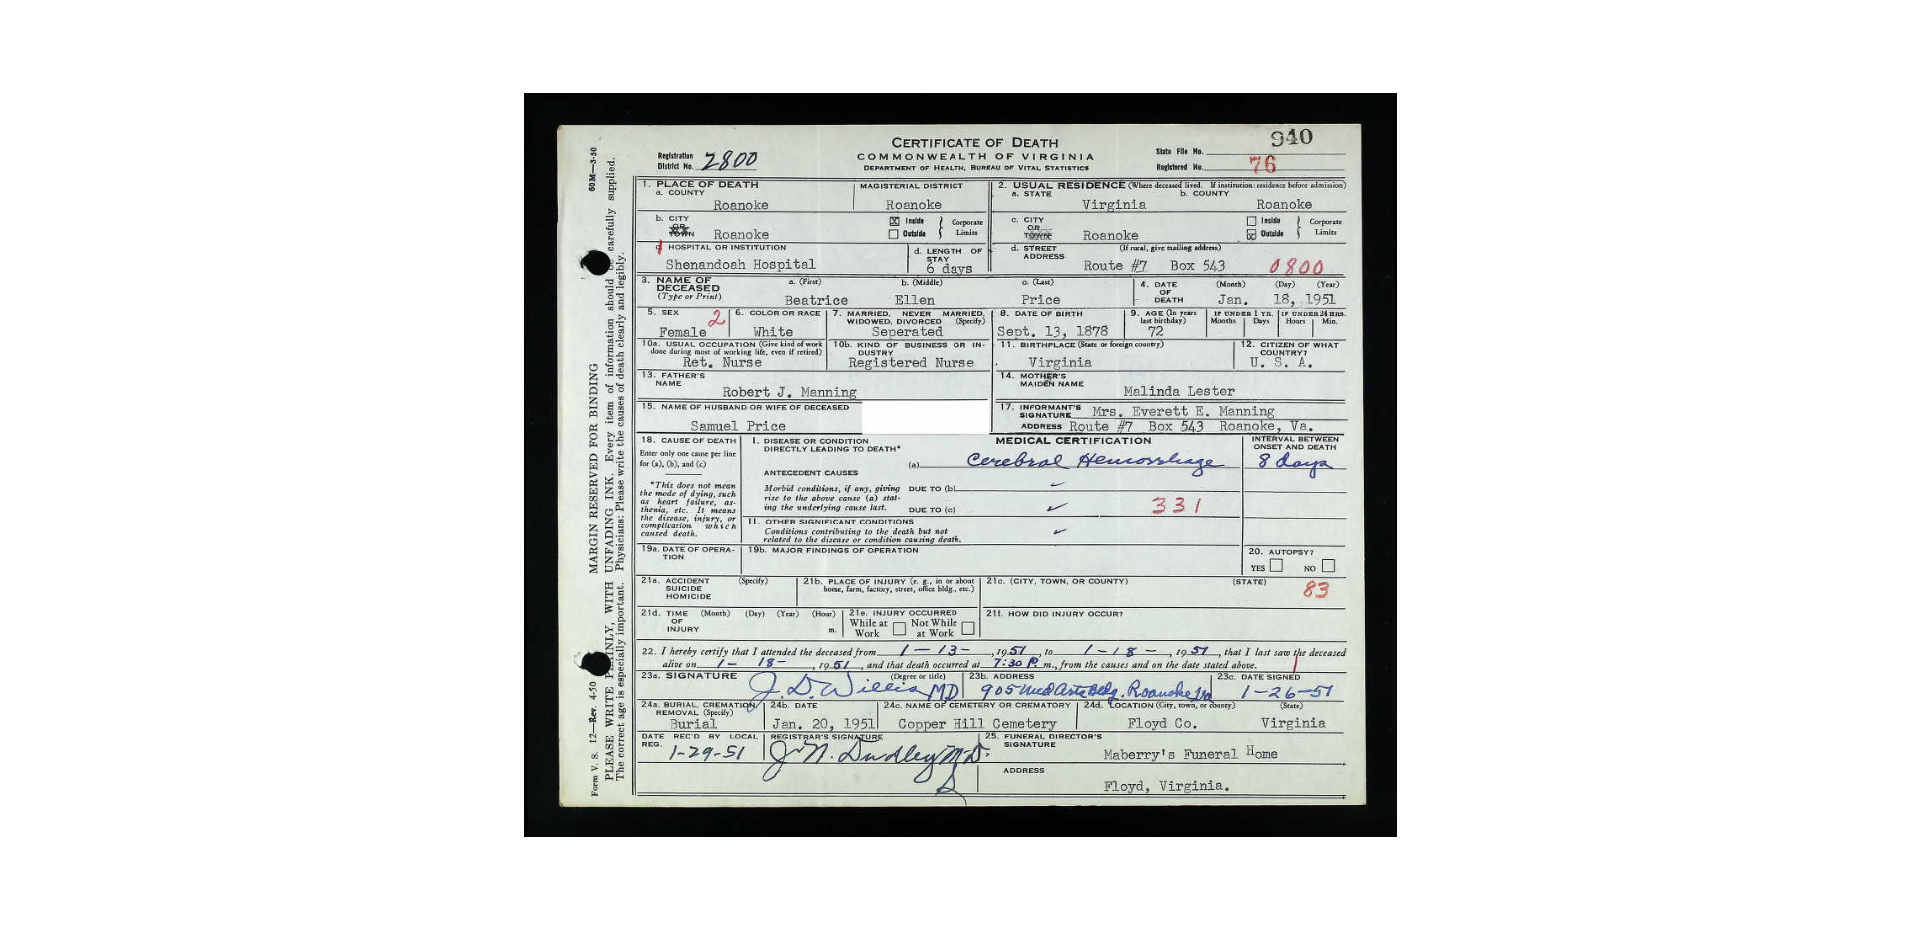 940
CERTIFICATE OF DEATH
COMMONWEALTH OF VIRGINIA
DEPARTMENT OF HEALTH, BUREAU OF VITAL STATISTICS
Registration District No. 2800
State File No.
Registered No. 76
60M—3-50
Form V. S. 12—Rev. 4-50
MARGIN RESERVED FOR BINDING
PLEASE WRITE PLAINLY, WITH UNFADING INK. Every item of information should be carefully supplied.
The correct age is especially important. Physicians: Please write the causes of death clearly and legibly.
1. PLACE OF DEATH
a. COUNTY
Roanoke
MAGISTERIAL DISTRICT
Roanoke
2. USUAL RESIDENCE (Where deceased lived. If institution: residence before admission)
a. STATE
Virginia
b. COUNTY
Roanoke
b. CITY OR TOWN
Roanoke
Inside
Outside
Corporate Limits
c. CITY OR TOWN
Roanoke
Inside
Outside
Corporate Limits
HOSPITAL OR INSTITUTION
Shenandoah Hospital
d. LENGTH OF STAY
6 days
d. STREET ADDRESS
(If rural, give mailing address)
Route #7 Box 543
0800
3. NAME OF DECEASED
(Type or Print)
a. (First)
Beatrice
b. (Middle)
Ellen
c. (Last)
Price
4. DATE OF DEATH
(Month) (Day) (Year)
Jan. 18, 1951
5. SEX
2
Female
6. COLOR OR RACE
White
7. MARRIED, NEVER MARRIED, WIDOWED, DIVORCED (Specify)
Seperated
8. DATE OF BIRTH
Sept. 13, 1878
9. AGE (In years last birthday)
72
IF UNDER 1 YR.
Months Days
IF UNDER 24 HRS.
Hours Min.
10a. USUAL OCCUPATION (Give kind of work done during most of working life, even if retired)
Ret. Nurse
10b. KIND OF BUSINESS OR INDUSTRY
Registered Nurse
11. BIRTHPLACE (State or foreign country)
Virginia
12. CITIZEN OF WHAT COUNTRY?
U. S. A.
13. FATHER'S NAME
Robert J. Manning
14. MOTHER'S MAIDEN NAME
Malinda Lester
15. NAME OF HUSBAND OR WIFE OF DECEASED
Samuel Price
17. INFORMANT'S SIGNATURE Mrs. Everett E. Manning
ADDRESS Route #7 Box 543 Roanoke, Va.
18. CAUSE OF DEATH
Enter only one cause per line for (a), (b), and (c)
*This does not mean the mode of dying, such as heart failure, asthenia, etc. It means the disease, injury, or complication which caused death.
MEDICAL CERTIFICATION
I. DISEASE OR CONDITION DIRECTLY LEADING TO DEATH*
(a) Cerebral Hemorrhage
INTERVAL BETWEEN ONSET AND DEATH
8 days
ANTECEDENT CAUSES
Morbid conditions, if any, giving rise to the above cause (a) stating the underlying cause last.
DUE TO (b)
DUE TO (c)
331
II. OTHER SIGNIFICANT CONDITIONS
Conditions contributing to the death but not related to the disease or condition causing death.
19a. DATE OF OPERATION
19b. MAJOR FINDINGS OF OPERATION
20. AUTOPSY?
YES NO
21a. ACCIDENT SUICIDE HOMICIDE
(Specify)
21b. PLACE OF INJURY (e. g., in or about home, farm, factory, street, office bldg., etc.)
21c. (CITY, TOWN, OR COUNTY)
(STATE)
83
21d. TIME OF INJURY
(Month) (Day) (Year) (Hour)
m.
21e. INJURY OCCURRED
While at Work
Not While at Work
21f. HOW DID INJURY OCCUR?
22. I hereby certify that I attended the deceased from 1-13-, 1951, to 1-18-, 1951, that I last saw the deceased
alive on 1-18-, 1951, and that death occurred at 7:30 P. m., from the causes and on the date stated above.
23a. SIGNATURE
(Degree or title)
J. D. Willis MD
23b. ADDRESS
905 Med Arts Bldg. Roanoke Va
23c. DATE SIGNED
1-26-51
24a. BURIAL, CREMATION, REMOVAL (Specify)
Burial
24b. DATE
Jan. 20, 1951
24c. NAME OF CEMETERY OR CREMATORY
Copper Hill Cemetery
24d. LOCATION (City, town, or county)
(State)
Floyd Co. Virginia
DATE REC'D BY LOCAL REG.
1-29-51
REGISTRAR'S SIGNATURE
J. N. Dudley M.D.
25. FUNERAL DIRECTOR'S SIGNATURE
Maberry's Funeral Home
ADDRESS
Floyd, Virginia.